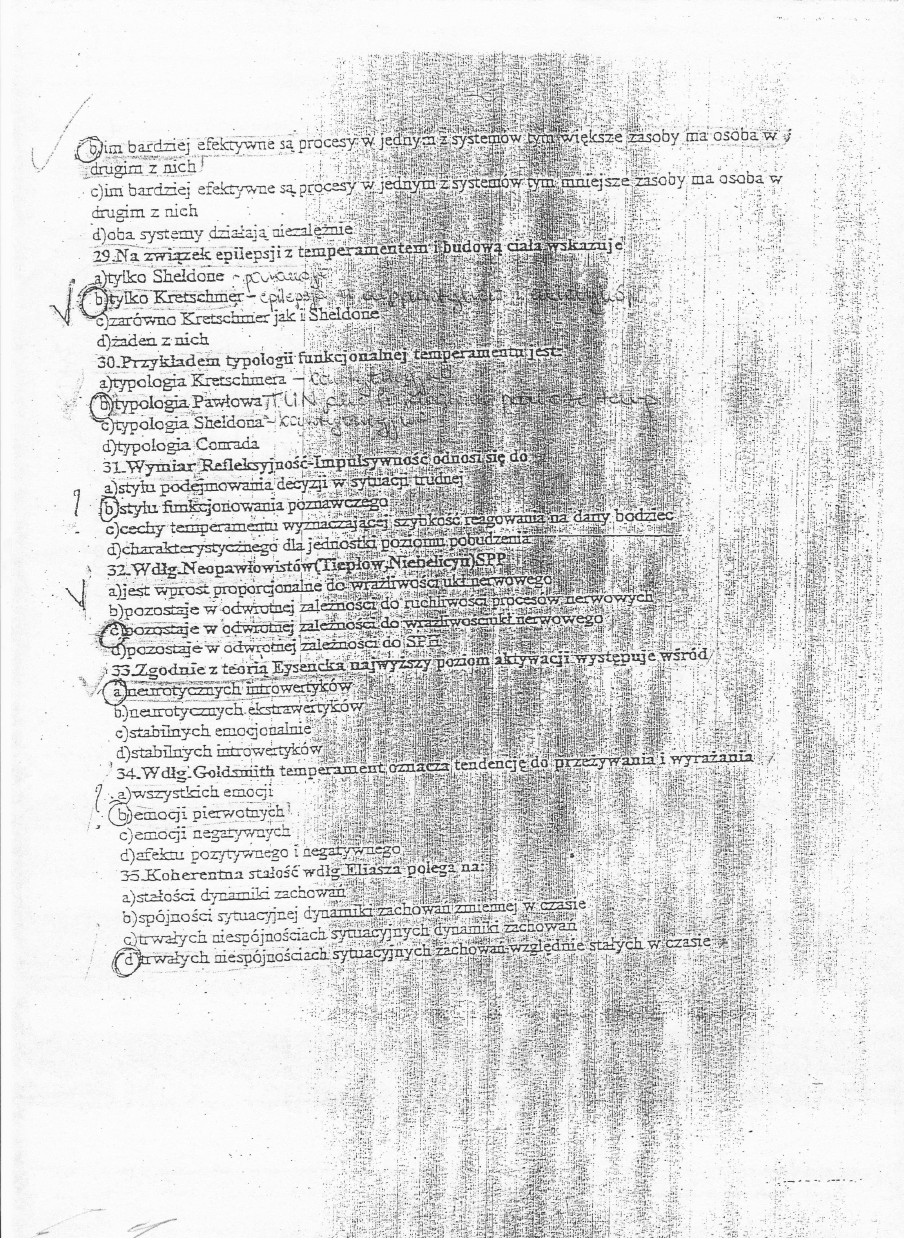 b)im bardziej efektywne są procesy w jednym z systemów tym większe zasoby ma osoba w
drugim z nich
c)im bardziej efektywne są procesy w jednym z systemów tym mniejsze zasoby ma osoba w
drugim z nich
d)oba systemy działają niezależnie
29.Na związek epilepsji z temperamentem i budową ciała wskazuje
a)tylko Sheldone -
b)tylko Kretschmer - epilepsja
c)zarówno Kretschmer jak i Sheldone
d)żaden z nich
30.Przykładem typologii funkcjonalnej temperamentu jest:
a)typologia Kretschmera -
b)typologia Pawłowa TUN
c)typologia Sheldona -
d)typologia Conrada
31.Wymiar Refleksyjność-Impulsywność odnosi się do
a)stylu podejmowania decyzji w sytuacji trudnej
b)stylu funkcjonowania poznawczego
c)cechy temperamentu wyznaczającej szybkość reagowania na dany bodziec
d)charakterystycznego dla jednostki poziomu pobudzenia
32.Wdłg.Neopawłowistów(Tiepłow,Niebelicyn)SPP
a)jest wprost proporcjonalne do wrażliwości ukł nerwowego
b)pozostaje w odwrotnej zależności do ruchliwości procesów nerwowych
c)pozostaje w odwrotnej zależności do wrażliwości ukł nerwowego
d)pozostaje w odwrotnej zależności do SPH
33.Zgodnie z teorią Eysencka najwyższy poziom aktywacji występuje wśród
a)neurotycznych introwertyków
b.)neurotycznych ekstrawertyków
c)stabilnych emocjonalnie
d)stabilnych introwertyków
34.Wdłg.Goldsmith temperament oznacza tendencję do przeżywania i wyrażania
? a)wszystkich emocji
b)emocji pierwotnych
c)emocji negatywnych
d)afektu pozytywnego i negatywnego
35.Koherentna stałość wdłg.Eliasza polega na:
a)stałości dynamiki zachowań
b)spójności sytuacyjnej dynamiki zachowań zmiennej w czasie
c)trwałych niespójnościach sytuacyjnych dynamiki zachowań
d)trwałych niespójnościach sytuacyjnych zachowań względnie stałych w czasie